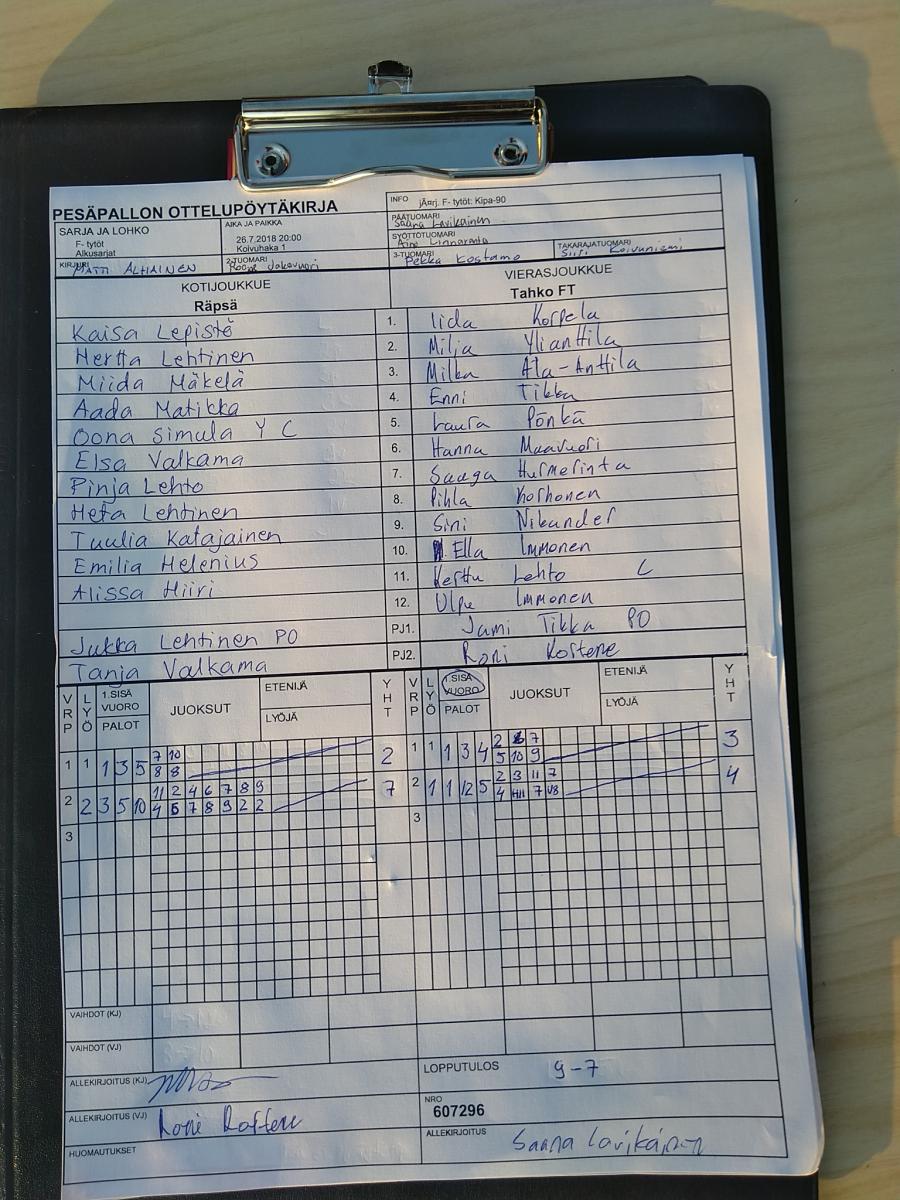 PESÄPALLON OTTELUPÖYTÄKIRJA
INFO jÄ¤rj. F- tytöt: Kipa-90
SARJA JA LOHKO
F- tytöt
Alkusarjat
AIKA JA PAIKKA
26.7.2018 20:00
Koivuhaka 1
PÄÄTUOMARI
Saana Lavikainen
SYÖTTÖTUOMARI
KIRJURI MATTI ALHAINEN
2-TUOMARI
3-TUOMARI Pekka Kostamo
TAKARAJATUOMARI
Siiri Koivuniemi
KOTIJOUKKUE
Räpsä
VIERASJOUKKUE
Tahko FT
Kaisa Lepistö 1. Iida Korpela
Hertta Lehtinen 2. Milja Ylianttila
Miida Mäkelä 3. Milka Ala-Anttila
Aada Matikka 4. Enni Tikka
Oona Simula Y C 5. Laura Pönkä
Elsa Valkama 6. Hanna Maavuori
Pinja Lehto 7. Saaga Hurmerinta
Heta Lehtinen 8. Pihla Korhonen
Tuulia Katajainen 9. Sini Nikander
Emilia Helenius 10. Ella Immonen
Alissa Hiiri 11. Kerttu Lehto C
12. Ulpu Immonen
Jukka Lehtinen PO PJ1. Jami Tikka PO
Tanja Valkama PJ2. Roni
VRP LYÖ 1.SISÄ VUORO PALOT JUOKSUT ETENIJÄ LYÖJÄ YHT VRP LYÖ 1.SISÄ VUORO PALOT JUOKSUT ETENIJÄ LYÖJÄ YHT
1 1 1 3 5 7 10 2 1 1 1 3 4 2 6 7 3
8 8 5 10 9
2 2 3 5 10 11 2 4 6 7 8 9 7 2 1 1 12 5 2 3 11 7 4
4 6 7 8 9 2 2 4 7 V8
3 3
VAIHDOT (KJ)
VAIHDOT (VJ)
ALLEKIRJOITUS (KJ)
LOPPUTULOS 9-7
ALLEKIRJOITUS (VJ) Roni
NRO
607296
HUOMAUTUKSET
ALLEKIRJOITUS Saana Lavikainen